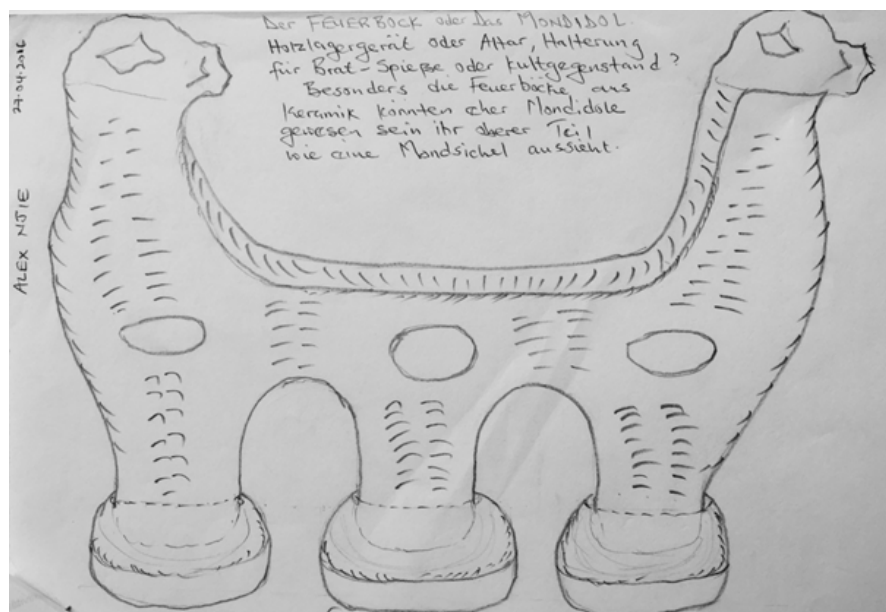 Der FEUERBOCK oder Das MONDIDOL.
Holzlagergerät oder Altar, Halterung
für Brat-Spieße oder Kultgegenstand?
Besonders die Feuerböcke aus
Keramik könnten eher Mondidole
gewesen sein ihr oberer Teil
wie eine Mondsichel aussieht.
27.04.2016
ALEX NJIE